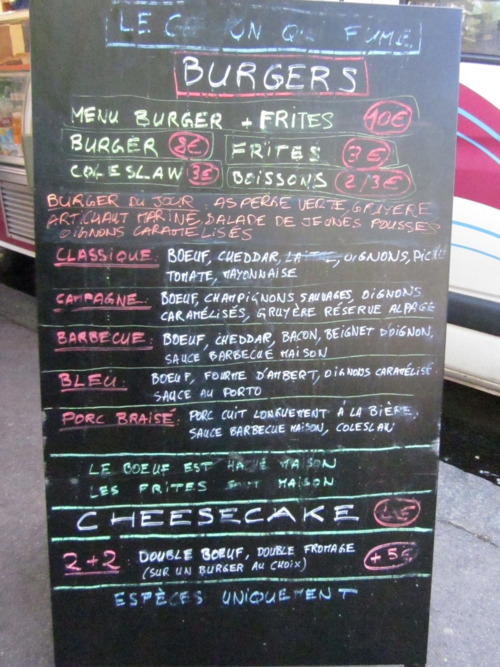 LE CA ON QUI FUME
BURGERS
MENU BURGER + FRITES 10€
BURGER 8€ FRITES 3€
COLESLAW 3€ BOISSONS 2/3€
BURGER DU JOUR : ASPERGE VERTE GRUYERE
ARTICHAUT MARINE, SALADE DE JEUNES POUSSES
OIGNONS CARAMELISÉS
CLASSIQUE: BOEUF, CHEDDAR, OIGNONS, PICKLE
TOMATE, MAYONNAISE
CAMPAGNE: BOEUF, CHAMPIGNONS SAUVAGES, OIGNONS
CARAMÉLISÉS, GRUYÈRE RÉSERVE ALPAGE
BARBECUE: BOEUF, CHEDDAR, BACON, BEIGNET D'OIGNON,
SAUCE BARBECUE MAISON
BLEU: BOEUF, FOURME D'AMBERT, OIGNONS CARAMÉLISÉ
SAUCE AU PORTO
PORC BRAISÉ: PORC CUIT LONGUEMENT À LA BIÈRE,
SAUCE BARBECUE MAISON, COLESLAW
LE BOEUF EST HACHÉ MAISON
LES FRITES SONT MAISON
CHEESECAKE
2+2 : DOUBLE BOEUF, DOUBLE FROMAGE +5€
(SUR UN BURGER AU CHOIX)
ESPÈCES UNIQUEMENT